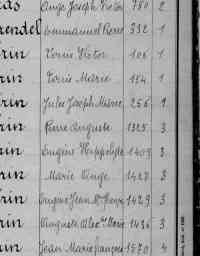 as Ange Joseph Victor 750 2
rendel Emmanuel René 332 1
rin Louis Victor 106 1
rin Louis Marie 154 1
rin Jules Joseph Marie 256 1
rin Pierre Auguste 1325 3
rin Eugène Hippolyte 1409 3
rin Marie Ange 1428 3
rin Eugène Jean Marie 1429 3
rin Auguste Marie 1436 3
rin Jean Marie François 1580 4